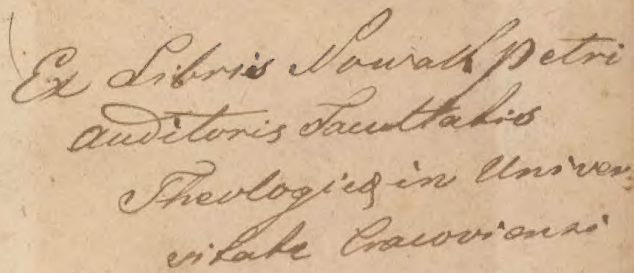 Ex Libris Nowak Petri
auditoris Facultatis
Theologicæ in Univer-
sitate Cracoviensi